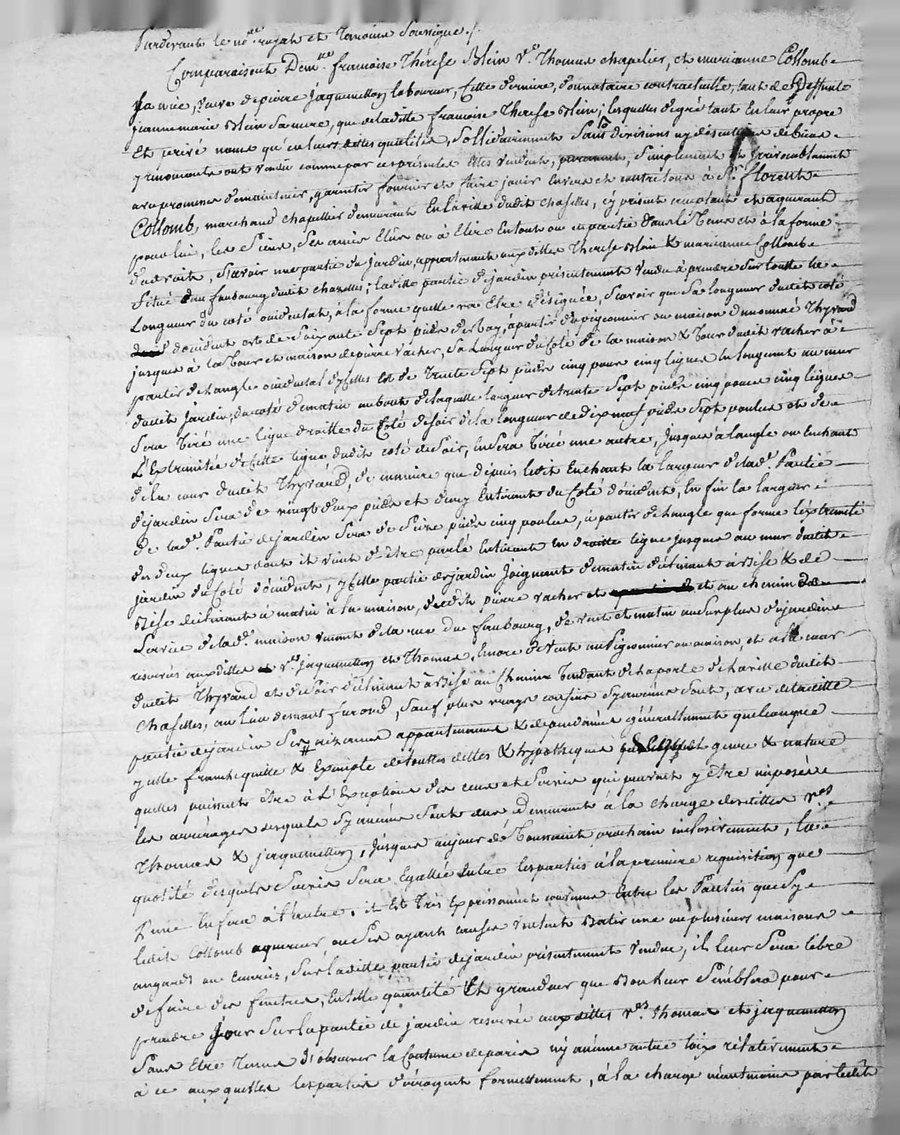 Pardevant le no.re royal et temoins soussignés /.
Comparaissent Dem.lle francoise Thérèse Blein v.e Thomas chapelier, et marianne Collomb
sa niéce, veuve de pierre Jaquemetton laboureur, cette derniere, donnataire contractuelle, tant de Deffunte
jeanne marie Blein sa mere, que de laditte francoise Therese Blein, lesquelles de gré tant en leur propre
et privé noms qu'en leurs dittes qualités, sollidairement sans divisions ny discutions de biens
y renoncants ont vendu comme par ces présentes elles vendent, purement, simplement et irrévocablement
avec promesse de maintenir, garentir fournir et faire jouir envers et contre tous à S.r florent
Collomb, marchand chapellier demeurant en la ville dudit chaselles, cy présent acceptant et aquerant
pour lui, les siens, ses amis élus ou à élire en tout ou en partie dans le tems et à la forme
du droit, sçavoir une partie du jardin, appartenant auxdittes Therese Blein & marianne Collomb
situé au faubourg dudit chazelles; laditte partie de jardin présentement vendu à prendre sur toutte la
longueur du coté occidental, à la forme quelle va etre désignée, sçavoir que sa longueur dudit coté
d'occident est de soixante sept pieds de roy, à partir du pigeonnier ou maison d'honnoré Thyvard
jusques à la cour et maison de pierre vacher, sa largeur du coté de la maison & cour dudit vacher à
partir de l'angle occidental d'icelles est de trente sept pieds cinq pouces cinq lignes en longeant au mur
dudit jardin, du coté de matin au bout de laquelle largeur de trente sept pieds cinq pouces cinq lignes
sera tiré une ligne droitte du coté de soir de la longueur de dix neuf pieds sept pouces et de
l'extremitée de cette ligne dudit coté de soir, en sera tirée une autre, jusques à l'angle ou enchant
de la cour dudit Thyvard, de maniere que depuis ledit enchant la largeur de lad.e partie
de jardin sera de vingt deux pieds et demy en tirant du coté d'occident, en fin la largeur
de lad.e partie de jardin sera de seize pieds cinq pouces, à partir de l'angle que forme l'extremité
des deux lignes dont il vient d'être parlé en tirant en droitte ligne jusques au mur dudit
jardin du coté d'occident, ycelle partie de jardin joignant de matin déclinant à bise & de
bise déclinant à matin à la maison, dudit pierre vacher et au chemin de
service de lad.e maison venant de la rue du faubourg, de vent et matin au surplus du jardin
reservés auxdittes v.es jaquemetton et Thomas, encore de vent au pigeonnier ou maison, et à la cour
dudit Thyvard et de soir déclinant à bise au chemin tendant de la porte de la ville dudit
chaselles, au lieu de montfuron, sauf plus vrays confins sy aucuns sont, avec de laditte
partie de jardin ses aizances appartenances & dependances généralement quelconques
ycelle franche quitte & exempte de touttes dettes & hypotheques genre & nature
quelles puissent être à l'exception des cens et servis qui peuvent y être imposés
les arrérages desquels sy aucuns sont dus demeurant à la charge desdittes v.es
Thomas & jaquemetton, jusques au jour de Toussaint prochain inclusivement, la
quotité desquels servis sera égallée entre les parties à la premiere requisition que
l'une en fera à l'autre; il est tres expressément convenu entre les parties que sy
ledit Collomb aquereur ou ses ayants causes veulent batir une ou plusieurs maisons
angards ou ecuries, sur laditte partie de jardin présentement vendue, il leur sera libre
de faire des fenetres, en telle quantité et grandeur que bon leur semblera pour
prendre jour sur la partie de jardin reservée auxdittes v.es Thomas et jaquemetton
sans etre tenus d'observer la coutume de paris ny aucune autre loix rélativement
à ce auxquelles les parties dérogent formellement, à la charge néantmoins par ledit